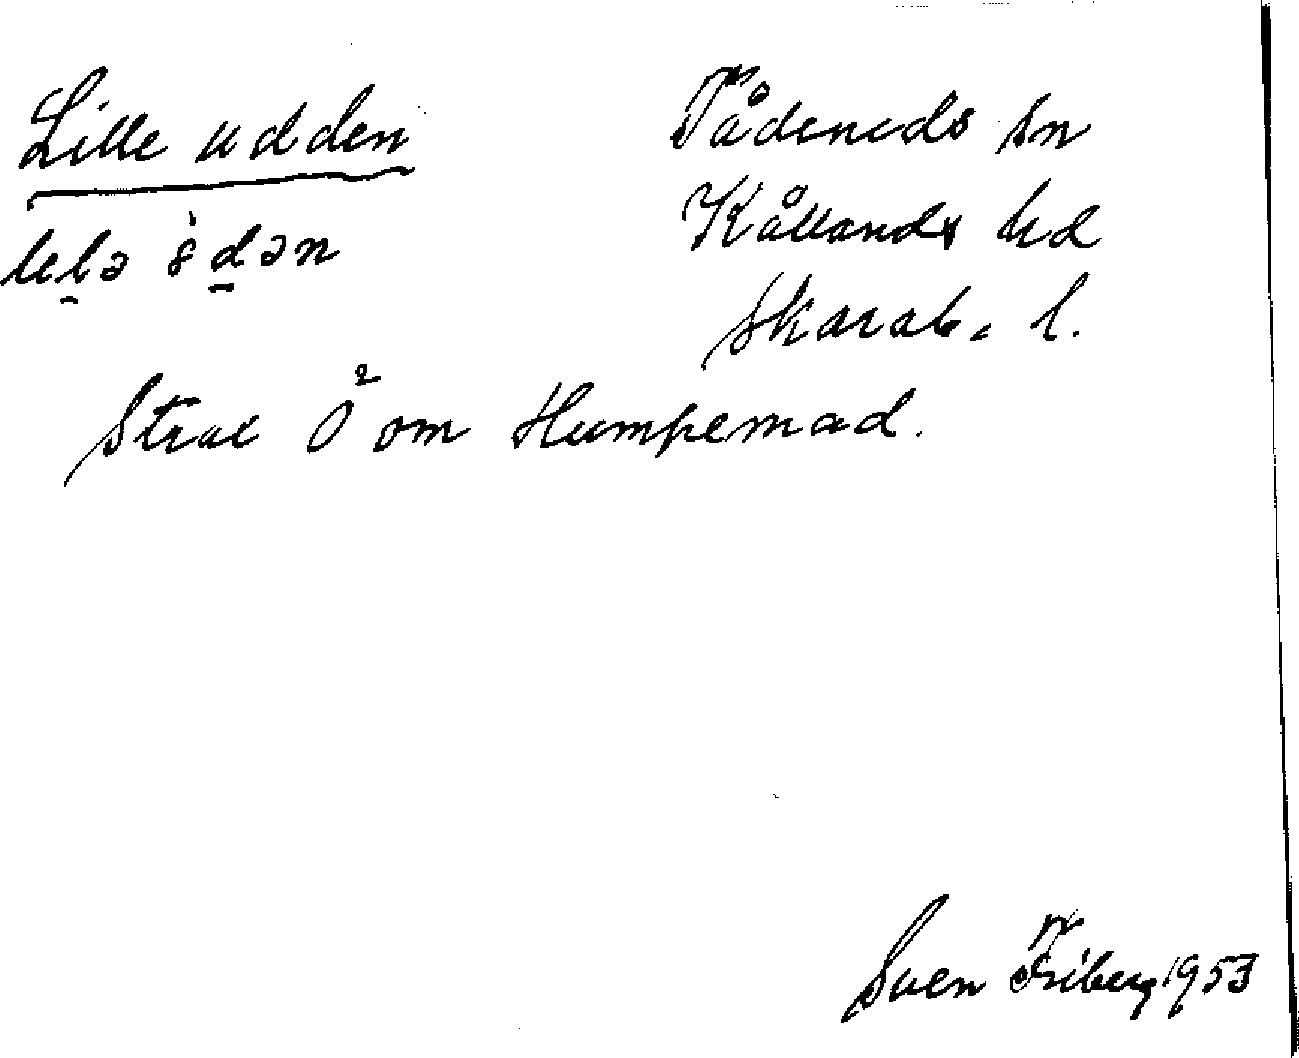 Lille udden
Tådeneds sn
Kållands hd
Skarab. l.
lelə ədən
Strax Ö om Humpemad.
Sven Friberg 1953